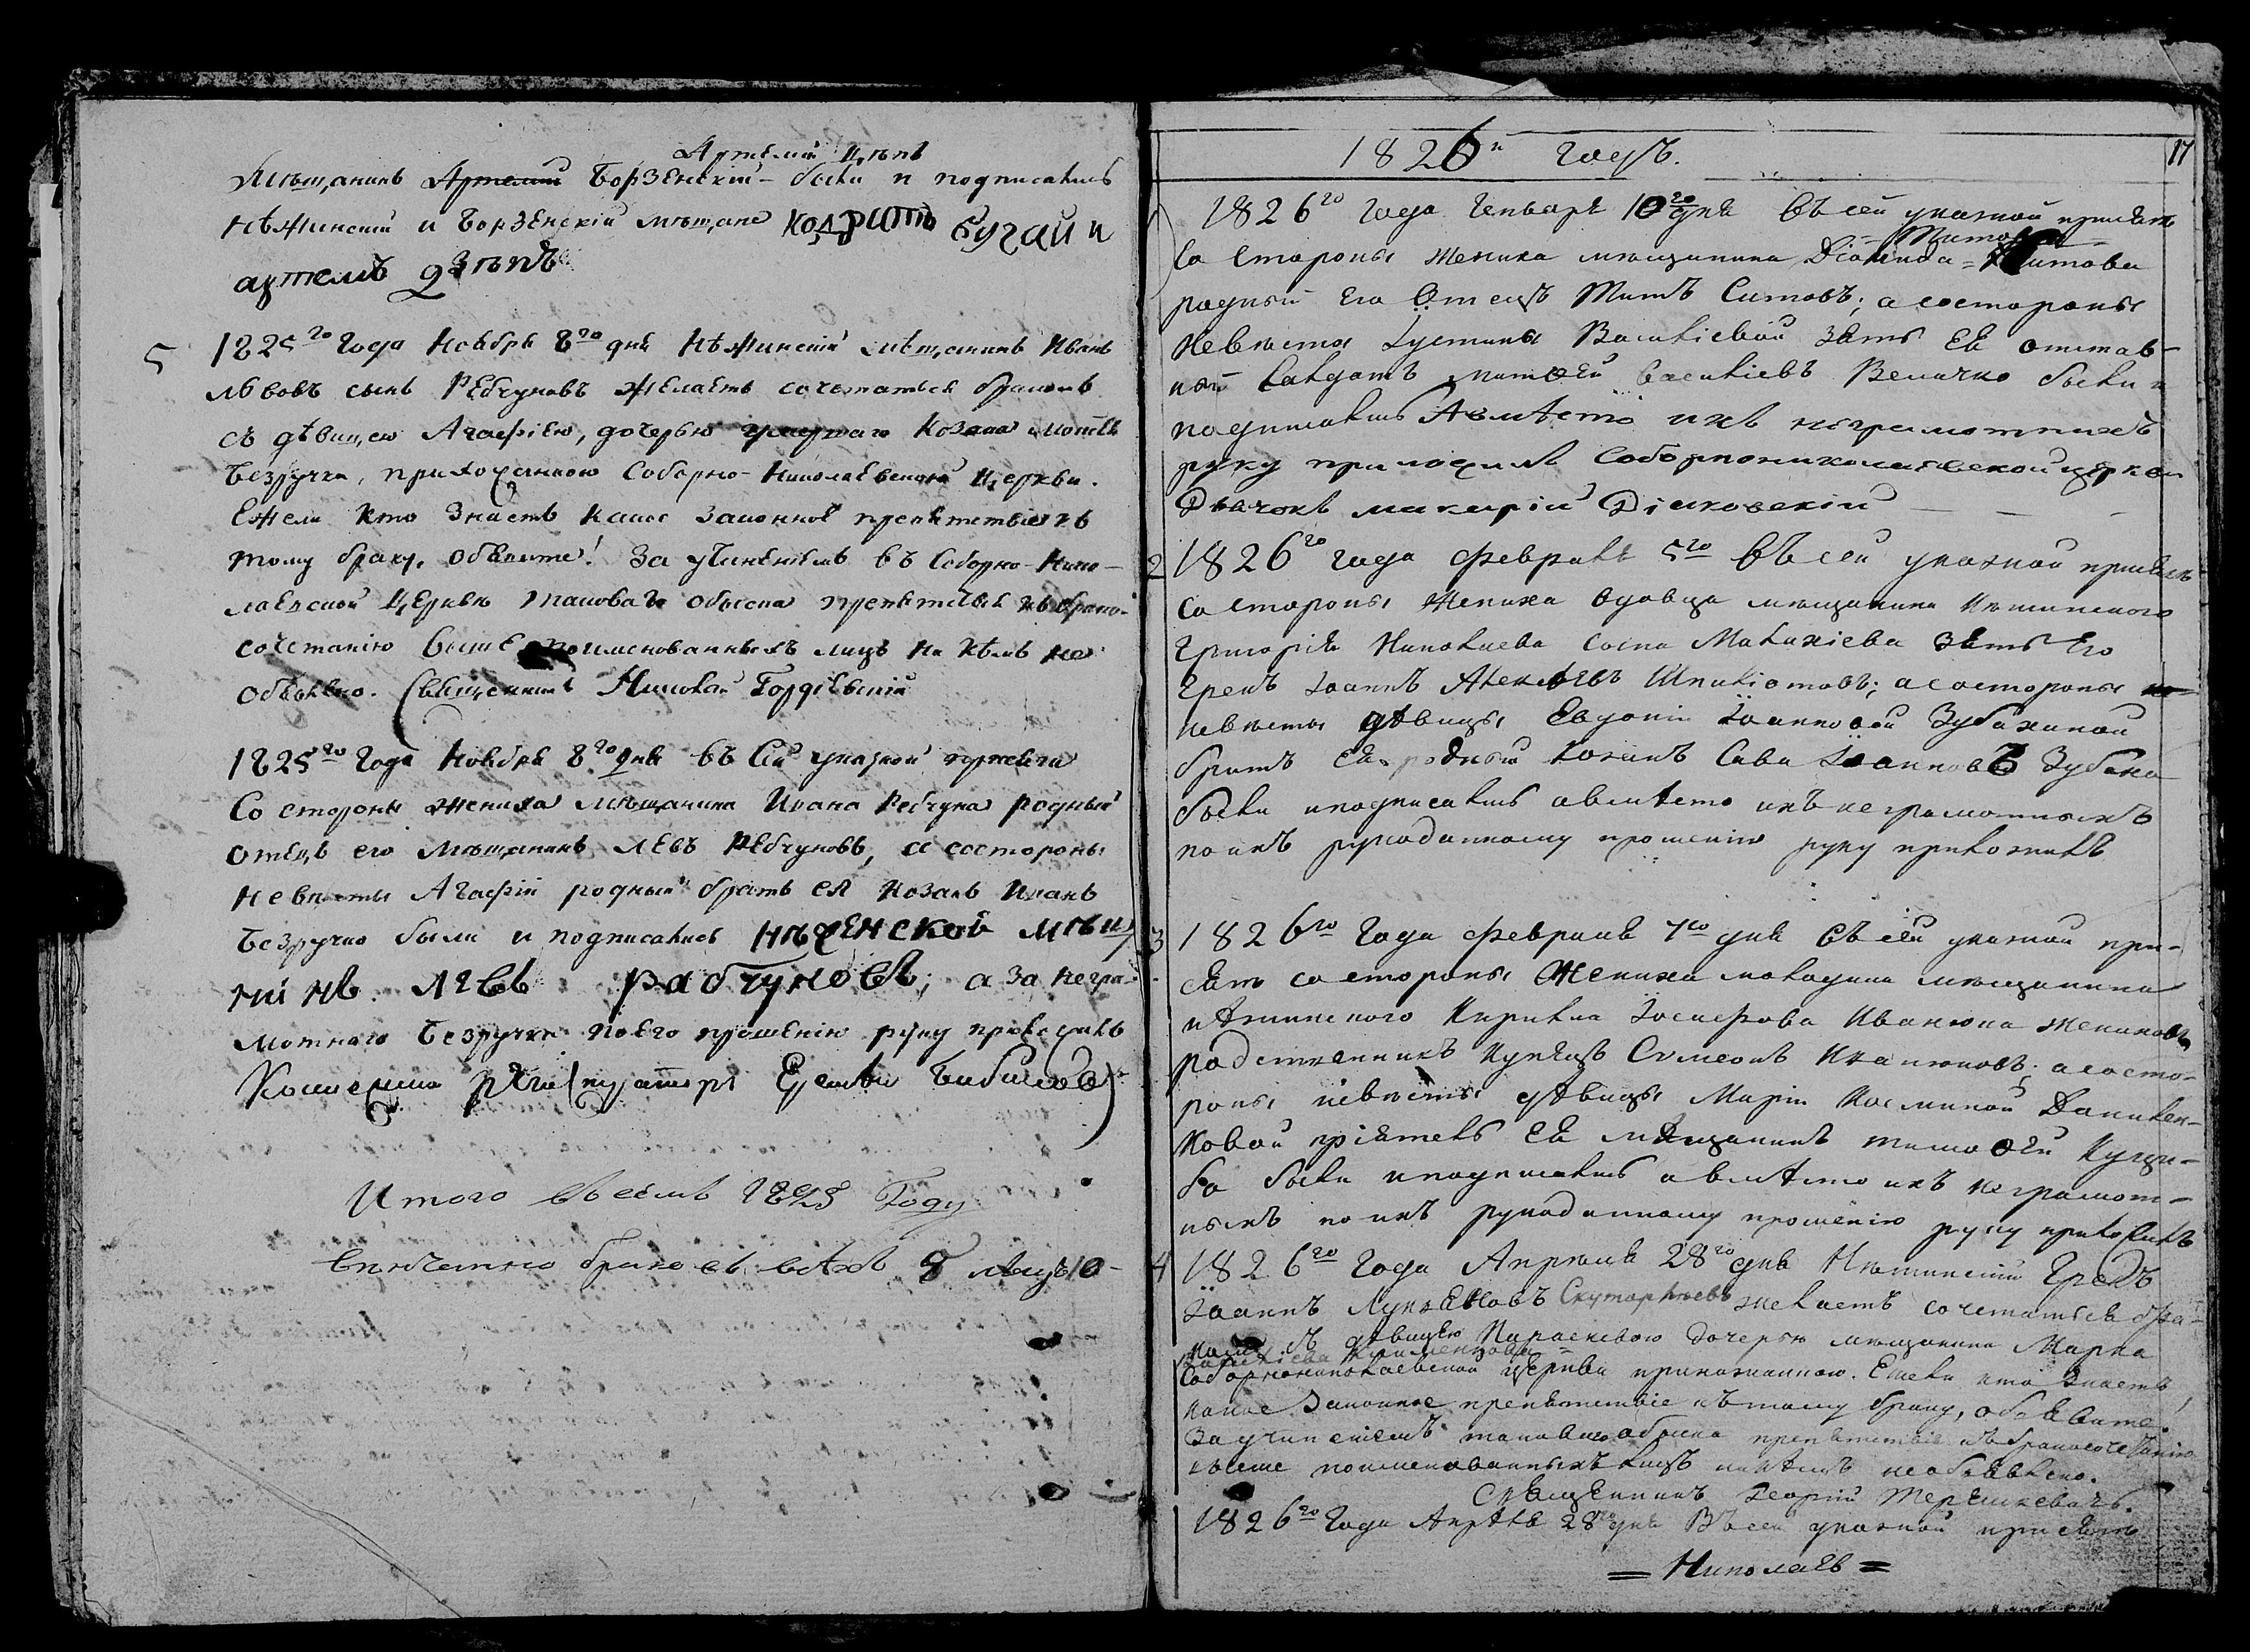 Артемій Цѣпъ
Мѣщанинъ Артемій Борзенскій - были и подписались
Нѣжинскій и Борзенскій мѣщане кодратъ бугай и
артемъ
5 1825го Года Ноября 8го дня Нѣжинскій мѣщанинъ Иванъ
Львовъ сынъ Рябчуновъ желаетъ сочетаться бракомъ
съ дѣвицею Агафіею, дочерью умершаго Козака
Безручка, прихожанкою Соборно-Николаевской Церкви.
Ежели кто знаетъ какое законное препятствіе къ
тому браку, объявите! За учиненіемъ въ Соборно-Нико-
лаевской Церквѣ таковаго обыска препятствія къ брако-
сочетанію выше поименованныхъ лицъ ни кѣмъ не
объявлено. Священникъ Николай Гордіевскій
1825го Года Ноября 8го дня въ Сей указной присяги
Со стороны жениха мѣщанина Ивана Рябчуна родный
отецъ его мѣщанинъ Левъ Рябчуновъ, а состороны
невѣсты Агафіи родный братъ ея козакъ Иванъ
Безручко были и подписались нѣженской мѣщ
нинъ левъ рабчуновъ; а за негра-
мотнаго Безручка по его прошенію руку приложилъ
Итого въ семъ 1825 Году
Вѣнчанно браковъ всѣхъ 5 лицъ 10-
17
1826й годъ.
1 1826го Года Генваря 10го дня въ сей указной присягѣ
Титова
Со Стороны жениха мѣщанина Діонисіа = Титова
родный его Отецъ Титъ Ситовъ; а состороны
Невѣсты Іустины Василіевой зять ея отстав-
ной Солдатъ матѳей Василіевъ Величко были и
подписались Авмѣсто ихъ неграмотныхъ
руку приложилъ Соборнониколаевской церкви
Дьячокъ макарій Діаковскій
2 1826го года февраля 5го въ сей указной присягѣ
Со стороны Жениха вдовца мѣщанина Нѣжинского
Григорія Николаева сына Малахіева зять Его
грекъ Іоаннъ Алексѣевъ; а состороны
невѣсты дѣвицы Евдокіи Іоанновой Зубахиной
братъ ея родный козакъ Сава Іоанновъ Зубаха
были иподписались авмѣсто ихъ неграмотныхъ
по ихъ рукоданному прошенію руку приложилъ
3 1826го Года февраля 7го дня въ сей указной при-
сягѣ со стороны Жениха молодика мѣщанина
нѣжинского Кирилла Іосифова Иванюка жениховъ
родственникъ купецъ Симеонъ Иванюковъ; а состо-
роны невѣсты дѣвицы Маріи Косминой Данилен-
ковой пріятель ея мѣщанинъ тимоѳей Куцы-
ба были иподписались авмѣсто ихъ неграмот-
ныхъ по ихъ рукоданному прошенію руку приложилъ
4 1826го Года Апрѣля 28го дня Нѣжинскій Грекъ
Іоаннъ Лукьяновъ Скутарліевъ желаетъ сочетаться бра-
комъ съ дѣвицею Параскевою Дочерью мѣщанина Марка
Соборнониколаевской церкви прихожанкою. Ежели кто знаетъ
какое Законное препятствіе къ тому браку, объявите!
За учиненіемъ таковаго обыска препятствіе къ бракосочетанію
выше поименованныхъ лицъ никѣмъ необъявлено.
Священникъ Георгій Терешкевичъ.
1826го Года Апрѣля 28го дня Въ сей указной присягѣ
= Николаевъ =